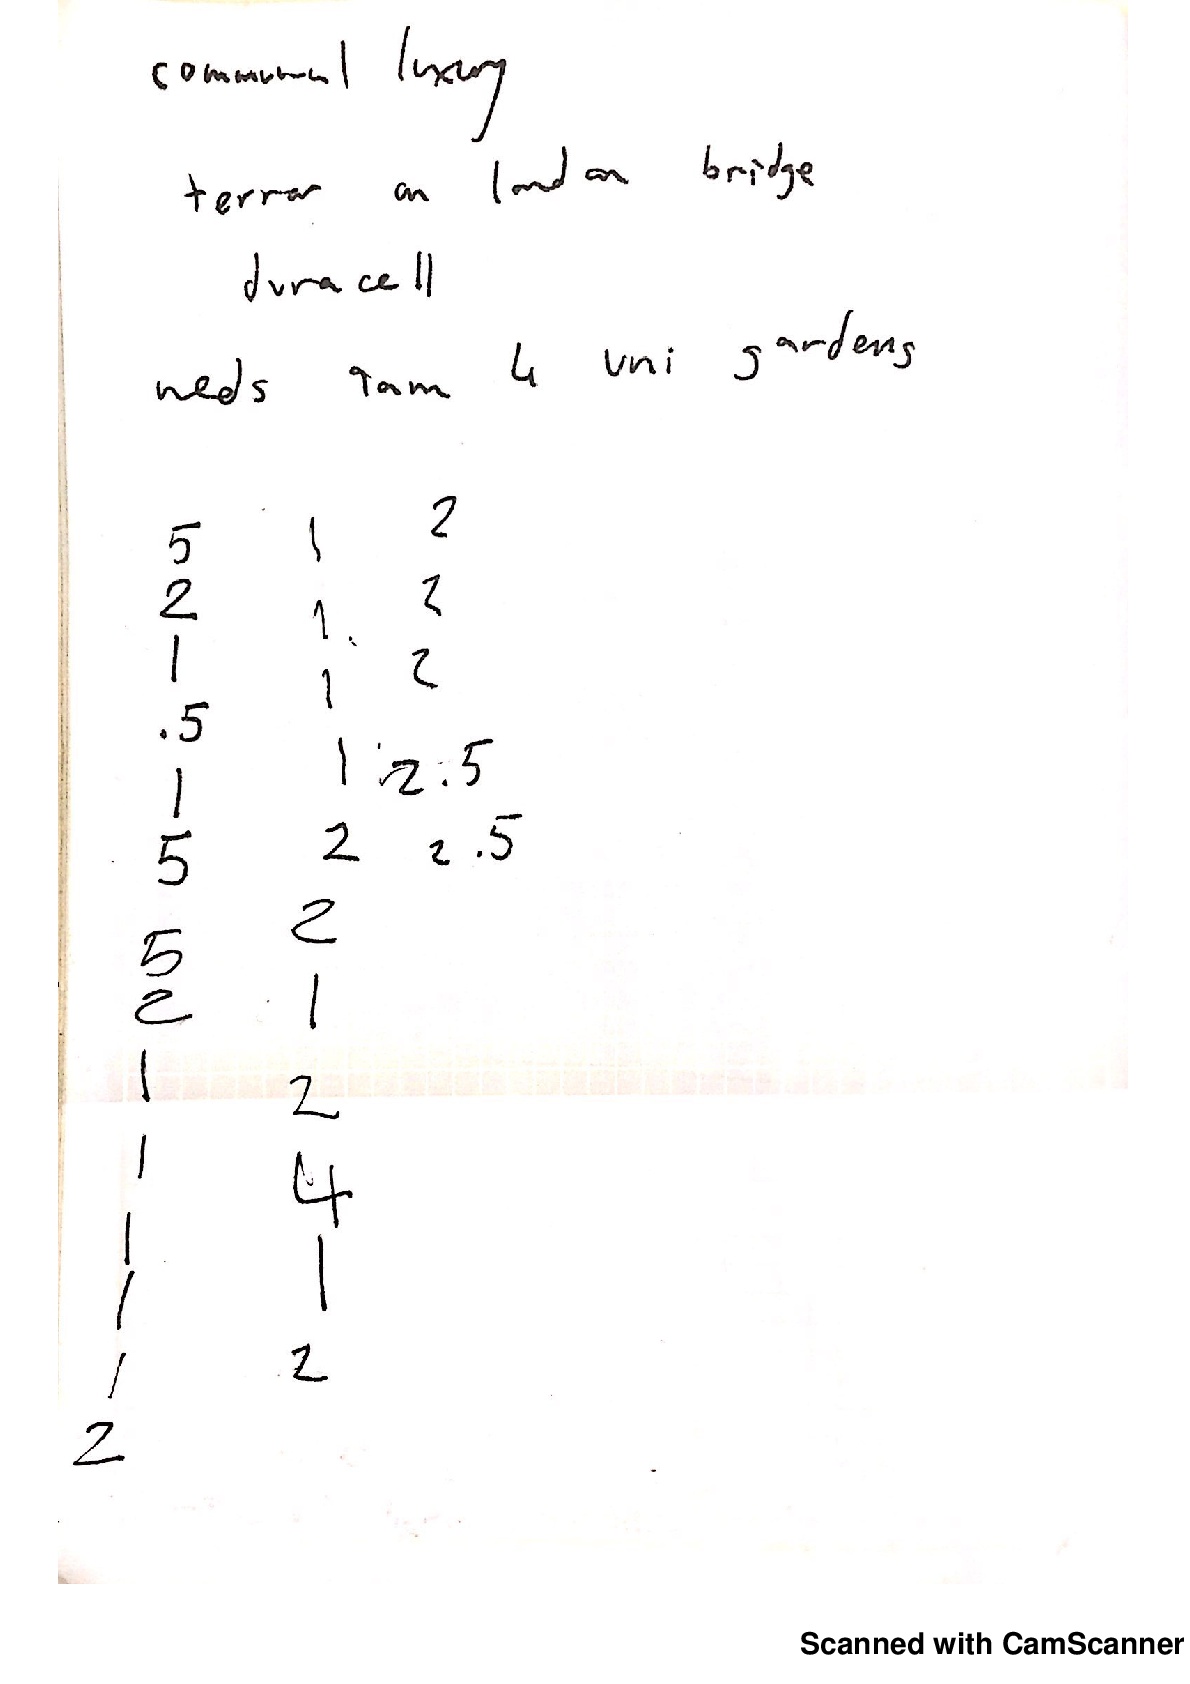 communal luxury
terror on london bridge
duracell
neds 9am 4 uni gardens
5 1 2
2 1 2
1 1 2
.5 1 2.5
1 2 2.5
5 2
5 1
2 2
1 4
1 1
1 2
1
1
2
Scanned with CamScanner